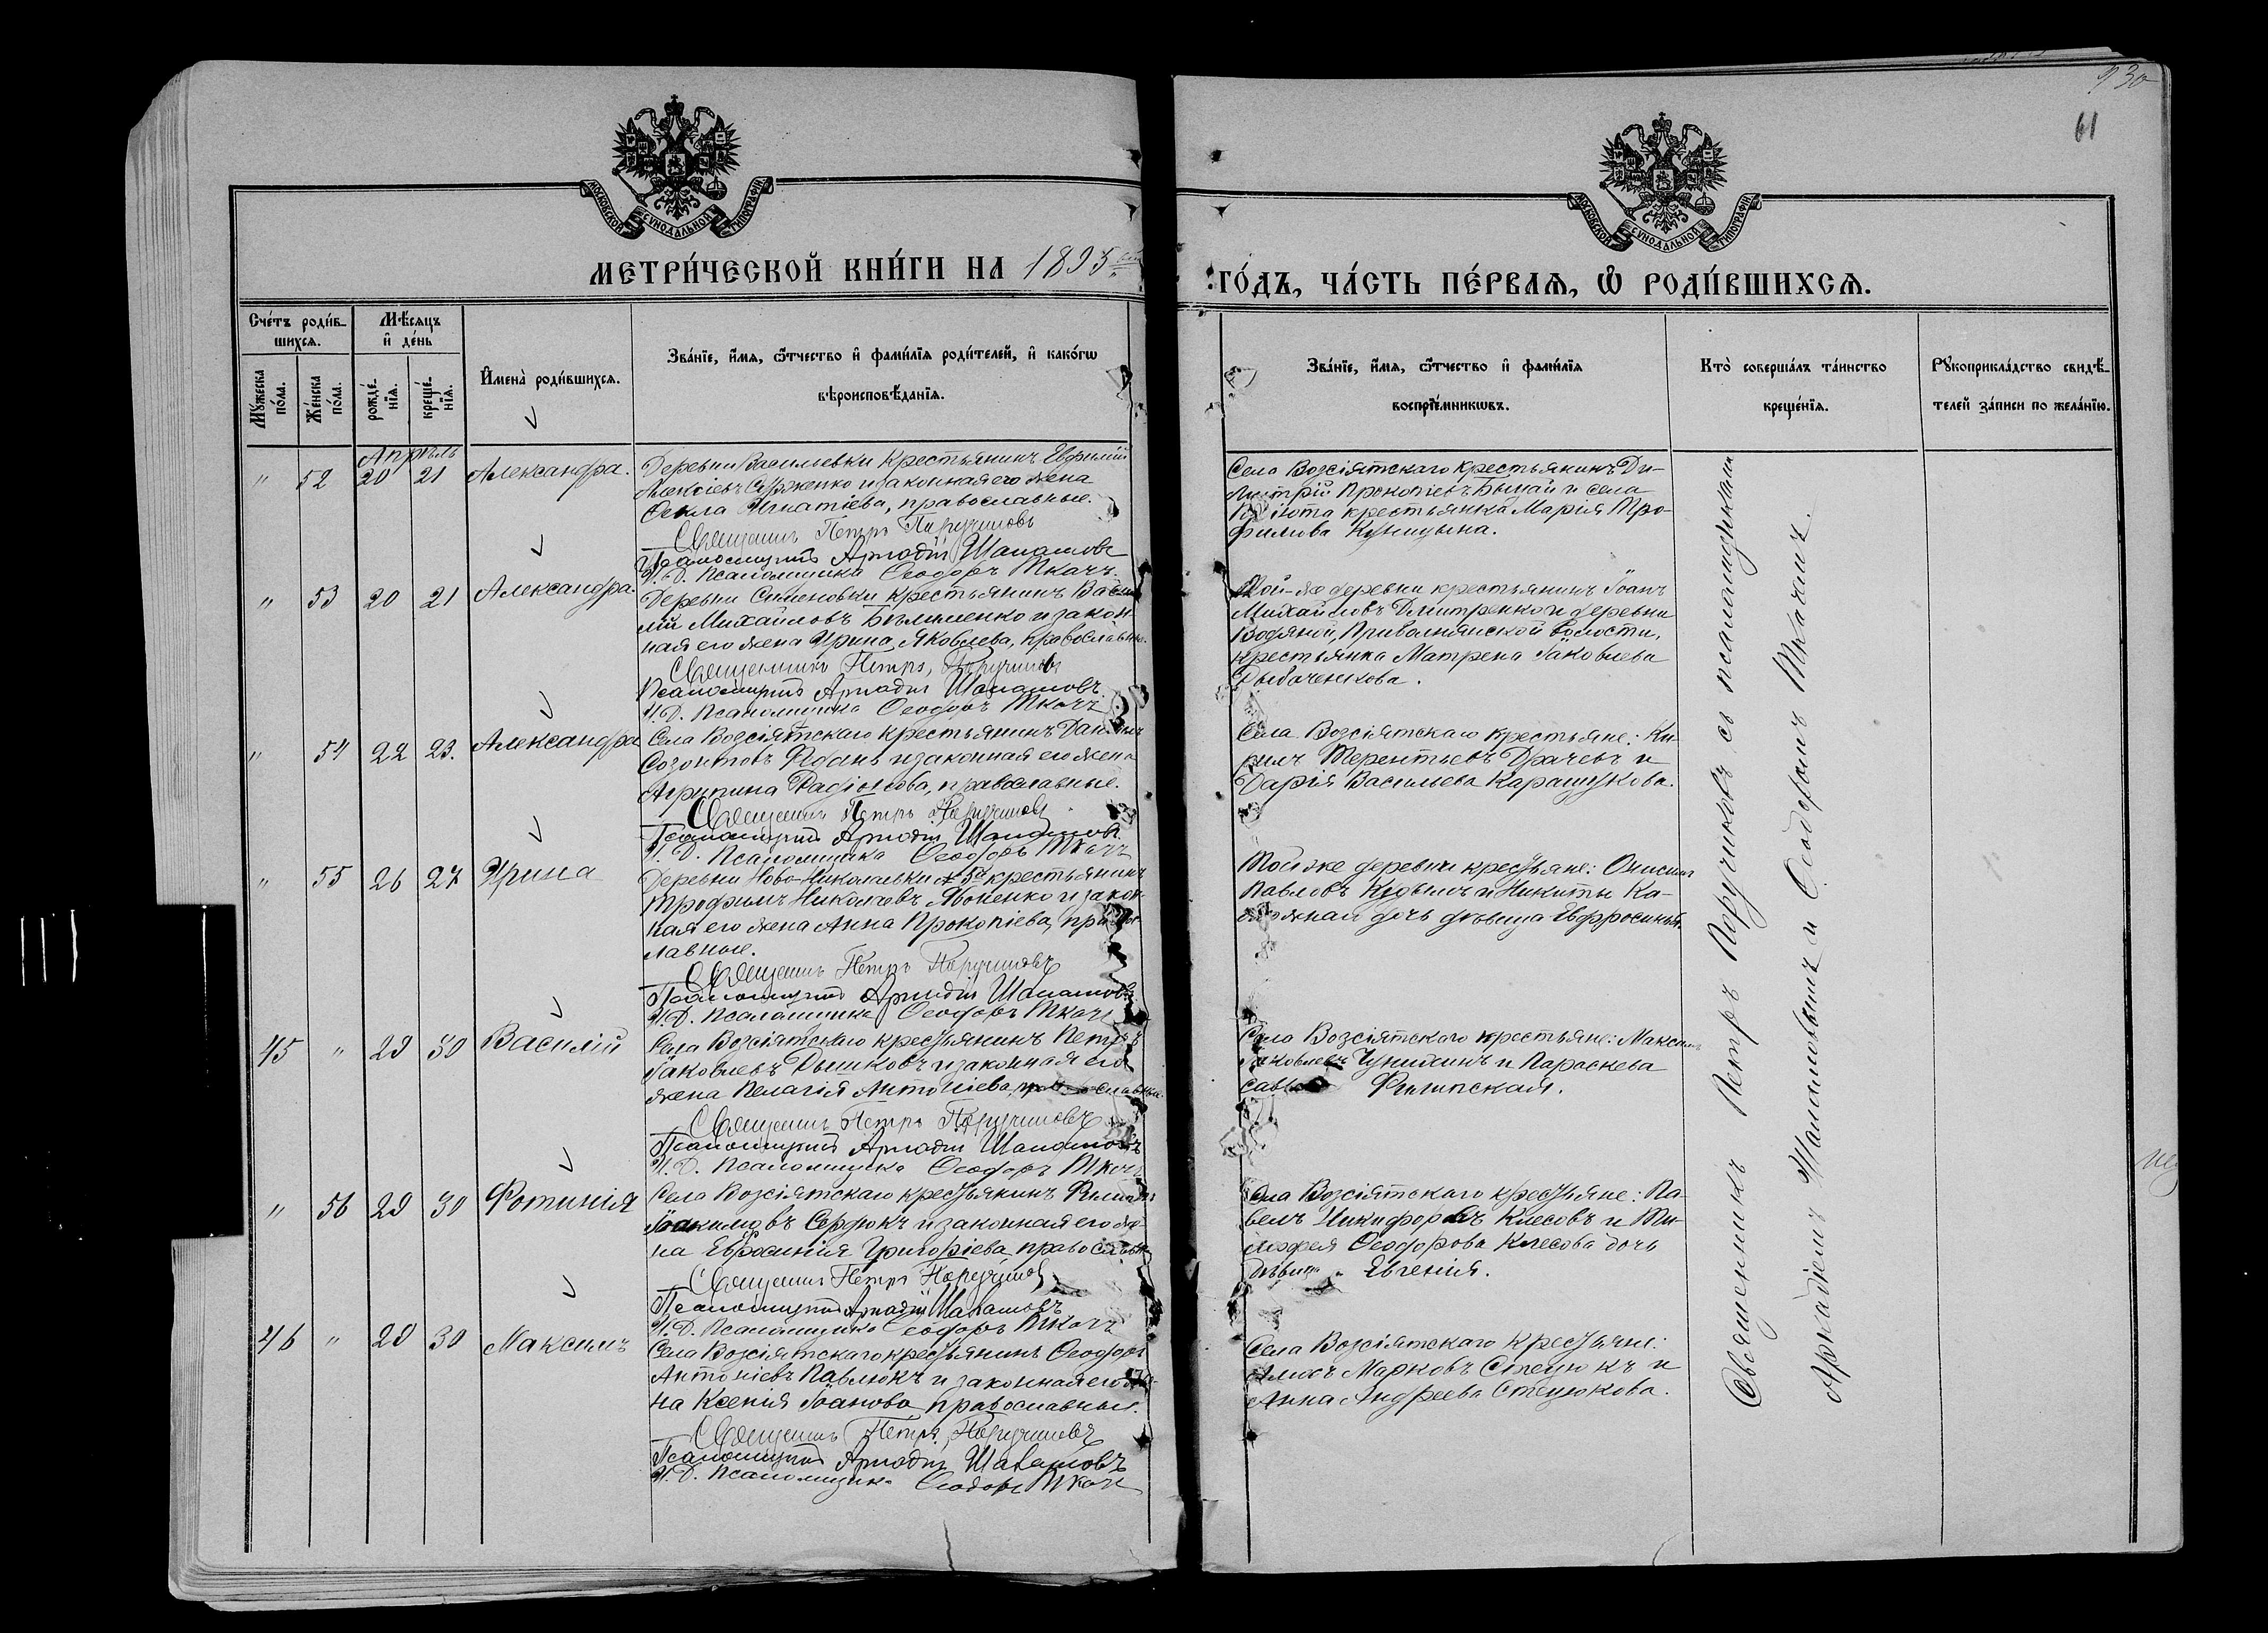 930
61
МОСКОВСКОЙ СѴНОДАЛЬНОЙ ТИПОГРАФІИ
МОСКОВСКОЙ СѴНОДАЛЬНОЙ ТИПОГРАФІИ
МЕТРИ́ЧЕСКОЙ КНИ́ГИ НА 1895
ГО́ДЪ, ЧА́СТЬ ПЕ́РВАѦ, Ѡ РОДИ́ВШИХСѦ.
Сче́тъ роди́в-
шихсѧ.
Мѣ́сѧцъ
и де́нь
Мꙋ́жеска по́ла.
Же́нска по́ла.
рожде́-
нїѧ.
креще́-
нїѧ.
И҆мена̀ роди́вшихсѧ.
Зва́нїе, и҆́мѧ, ѻ҆́тчество и҆ фами́лїѧ роди́телей, и҆ како́гѡ
вѣроисповѣ́данїѧ.
Зва́нїе, и҆́мѧ, ѻ҆́тчество и҆ фами́лїѧ
воспрїе́мникѡвъ.
Кто̀ соверша́лъ та́инство
креще́нїѧ.
Рꙋкоприкла́дство свидѣ́-
телей за́писи по жела́нїю.
Апрѣль
" 52 20 21 Александра.
Деревни Васильевки крестьянинъ Евфимій
Алексіевъ и законная его жена
Ѳекла Игнатіева, православные.
Священникъ Петръ Поручиковъ
Псаломщикъ Аркадій Шапашовъ
И.Д. Псаломщика Ѳеодоръ Ткачъ
Села Возсіятскаго крестьянинъ Ди-
митрій Прокопіевъ и села
крестьянка Марія Тро-
фимова Куницына.
" 53 20 21 Александра.
Деревни Семеновки крестьянинъ
Михайловъ и закон-
ная его жена Ирина Яковлева, православн.
Священникъ Петръ Поручиковъ
Псаломщикъ Аркадій Шапашовъ
И.Д. Псаломщика Ѳеодоръ Ткачъ
Той-же деревни крестьянинъ Іоанъ
Михайловъ Дмитренко и деревни
Водяной, Привольнянской волости,
крестьянка Матрена Іаковлева
" 54 22 23. Александра
Села Возсіятскаго крестьянинъ
Созонтовъ и законная его жена
Агрипина Радіонова, православные.
Священникъ Петръ Поручиковъ
Псаломщикъ Аркадій Шапашовъ
И.Д. Псаломщика Ѳеодоръ Ткачъ
Села Возсіятскаго крестьяне: Ки-
рилъ Терентьевъ Драчевъ и
Дарія Васильева
" 55 26 27 Ирина
Деревни Ново-Николаевки крестьянинъ
Трофимъ Николаевъ и закон-
ная его жена Анна Прокопіева, правос-
лавные.
Священникъ Петръ Поручиковъ
Псаломщикъ Аркадій Шапашовъ
И.Д. Псаломщика Ѳеодоръ Ткачъ
Той же деревни крестьяне: Онисимъ
Павловъ и Никиты
дочь дѣвица Евфросинія.
45 " 29 30 Василій
Села Возсіятскаго крестьянинъ Петръ
Іаковлевъ Дышковъ и законная его
жена Пелагія Антоніева, православные.
Священникъ Петръ Поручиковъ
Псаломщикъ Аркадій Шапашовъ
И.Д. Псаломщика Ѳеодоръ Ткачъ
Села Возсіятскаго крестьяне: Максимъ
Іаковлевъ Чунихинъ и Параскева
" 56 29 30 Фотинія
Села Возсіятскаго крестьянинъ
Іоакимовъ Сердюкъ и законная его же-
на Евфросинія Григоріева православн.
Священникъ Петръ Поручиковъ
Псаломщикъ Аркадій Шапашовъ
И.Д. Псаломщика Ѳеодоръ Ткачъ
Села Возсіятскаго крестьяне: Па-
велъ Никифоровъ Клесовъ и Ти-
мофея Ѳеодорова Клесова дочь
дѣвица Евгенія.
46 " 29 30 Максимъ
Села Возсіятскаго крестьянинъ Ѳеодоръ
Антоніевъ Павлюкъ и законная его же-
на Ксенія Іоанова православные.
Священникъ Петръ Поручиковъ
Псаломщикъ Аркадій Шапашовъ
И.Д. Псаломщика Ѳеодоръ Ткачъ
Села Возсіятскаго крестьяне:
Марковъ Стецюкъ и
Анна Андреева Стецюкова.
Священникъ Петръ Поручиковъ съ псаломщиками
Аркадіемъ Шапашовымъ и Ѳеодоромъ Ткачомъ.